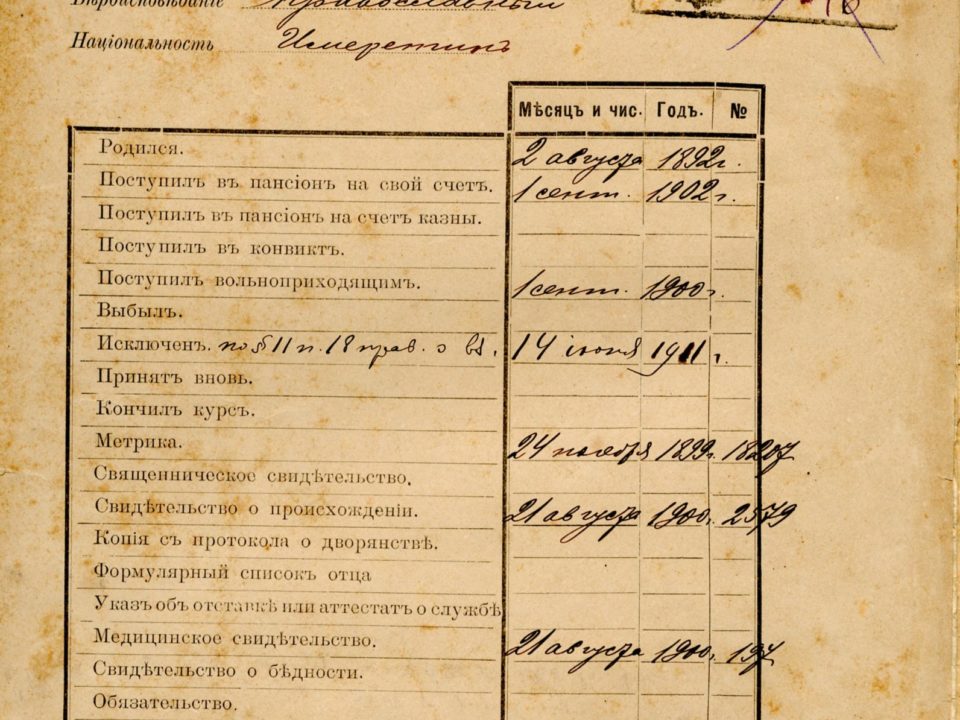 Вѣроисповѣданіе Православный
Національность Имеретинъ
Мѣсяцъ и чис. Годъ. №
Родился. 2 августа 1892 г.
Поступилъ въ пансіонъ на свой счетъ. 1 сент. 1902 г.
Поступилъ въ пансіонъ на счетъ казны.
Поступилъ въ конвиктъ.
Поступилъ вольноприходящимъ. 1 сент. 1900 г.
Выбылъ.
Исключенъ. по § 11 п. 18 прав. о 14 іюня 1911 г.
Принятъ вновь.
Кончилъ курсъ.
Метрика. 24 ноября 1899 г. 18207
Священническое свидѣтельство.
Свидѣтельство о происхожденіи. 21 августа 1900 г. 2579
Копія съ протокола о дворянствѣ.
Формулярный списокъ отца
Указъ объ отставкѣ или аттестатъ о службѣ
Медицинское свидѣтельство. 21 августа 1900 г. 197
Свидѣтельство о бѣдности.
Обязательство.